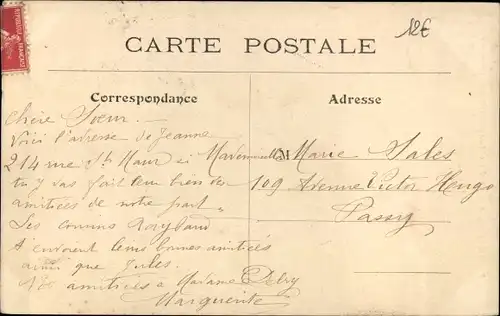 12€
CARTE POSTALE
Correspondance
Adresse
Chère Soeur
Voici l'adresse de Jeanne
214 rue St Maur si
tu y vas fait leur bien des
amitiés de notre part
Les cousins
t'envoient leurs bonnes amitiés
ainsi que Jules.
amitiés a Madame
Marguerite
Mademoiselle Marie Sales
109 Avenue Victor Hugo
Passy